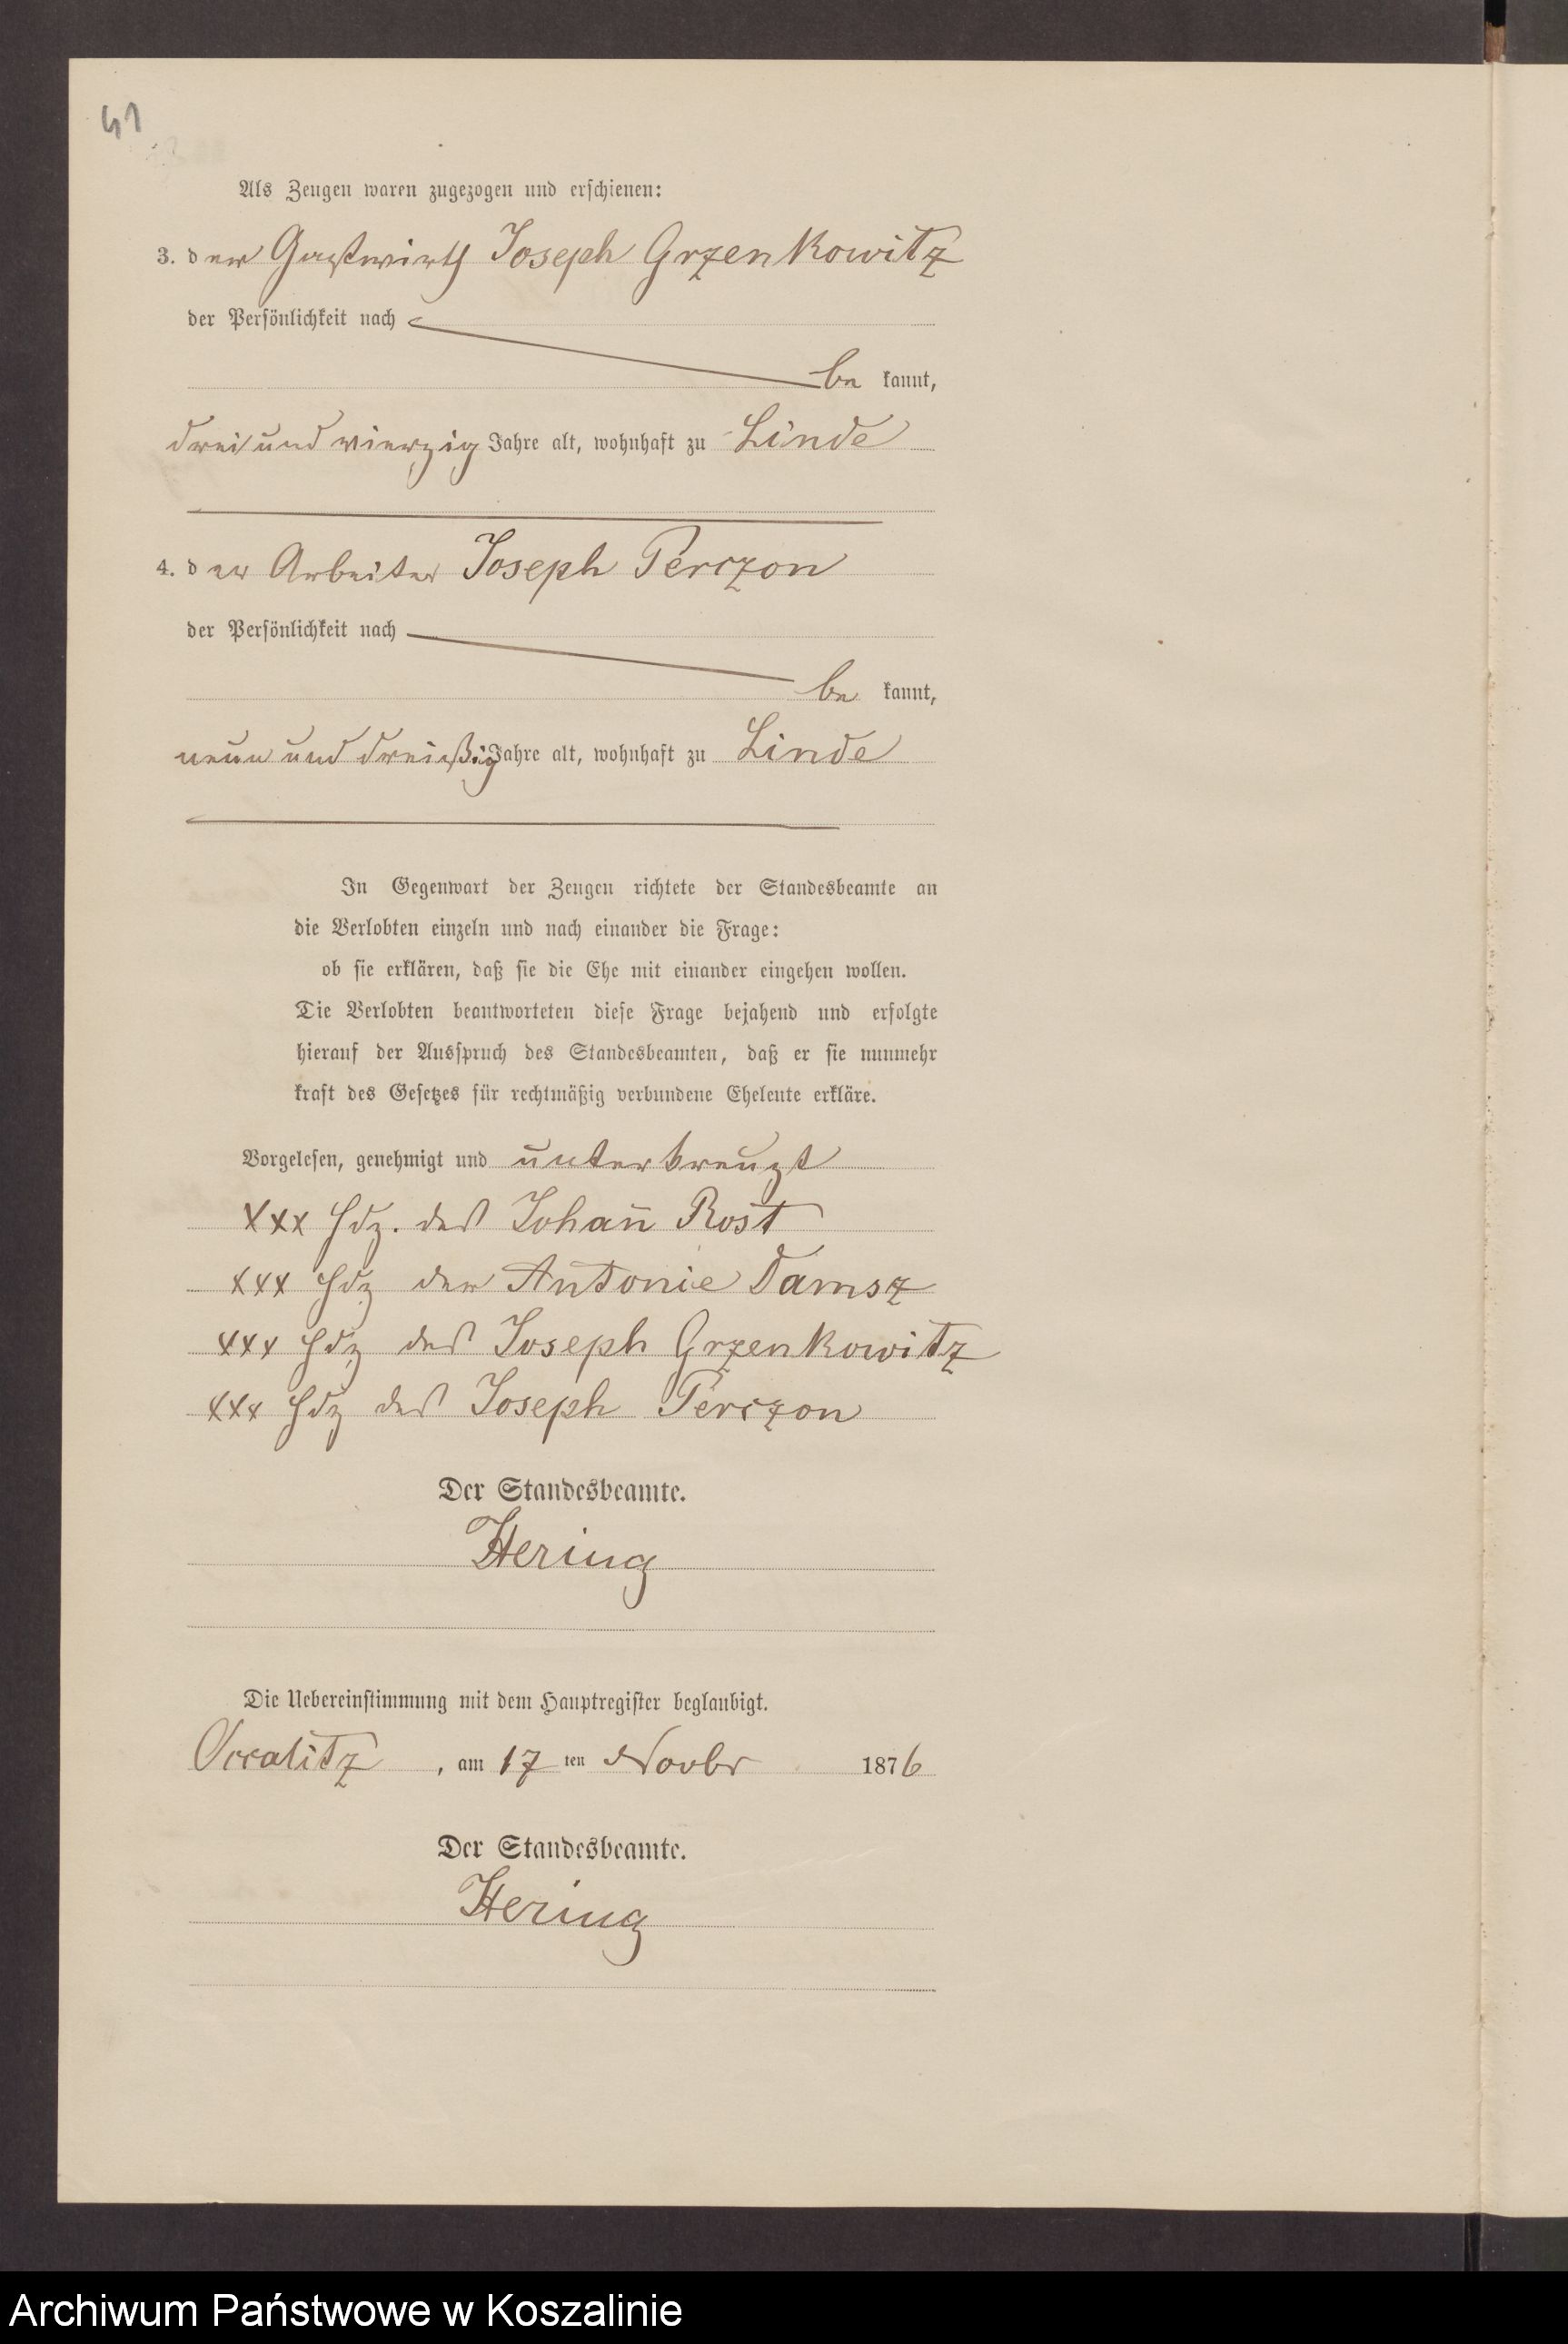 41
Als Zeugen waren zugezogen und erschienen:
3. der Gastwirth Joseph Grzenkowitz
der Persönlichkeit nach
be kannt,
drei und vierzig Jahre alt, wohnhaft zu Linde
4. der Arbeiter Joseph Perczon
der Persönlichkeit nach
be kannt,
neun und dreißig Jahre alt, wohnhaft zu Linde
In Gegenwart der Zeugen richtete der Standesbeamte an
die Verlobten einzeln und nach einander die Frage:
ob sie erklären, daß sie die Ehe mit einander eingehen wollen.
Die Verlobten beantworteten diese Frage bejahend und erfolgte
hierauf der Ausspruch des Standesbeamten, daß er sie nunmehr
kraft des Gesetzes für rechtmäßig verbundene Eheleute erkläre.
Vorgelesen, genehmigt und unterkreuzt
XXX Hdz. des Johan̄ Rost
XXX Hdz der Antonie Damsz
XXX Hdz des Joseph Grzenkowitz
XXX Hdz des Joseph Perczon
Der Standesbeamte.
Hering
Die Uebereinstimmung mit dem Hauptregister beglaubigt.
Occalitz, am 17 ten Novbr 1876
Der Standesbeamte.
Hering
Archiwum Państwowe w Koszalinie